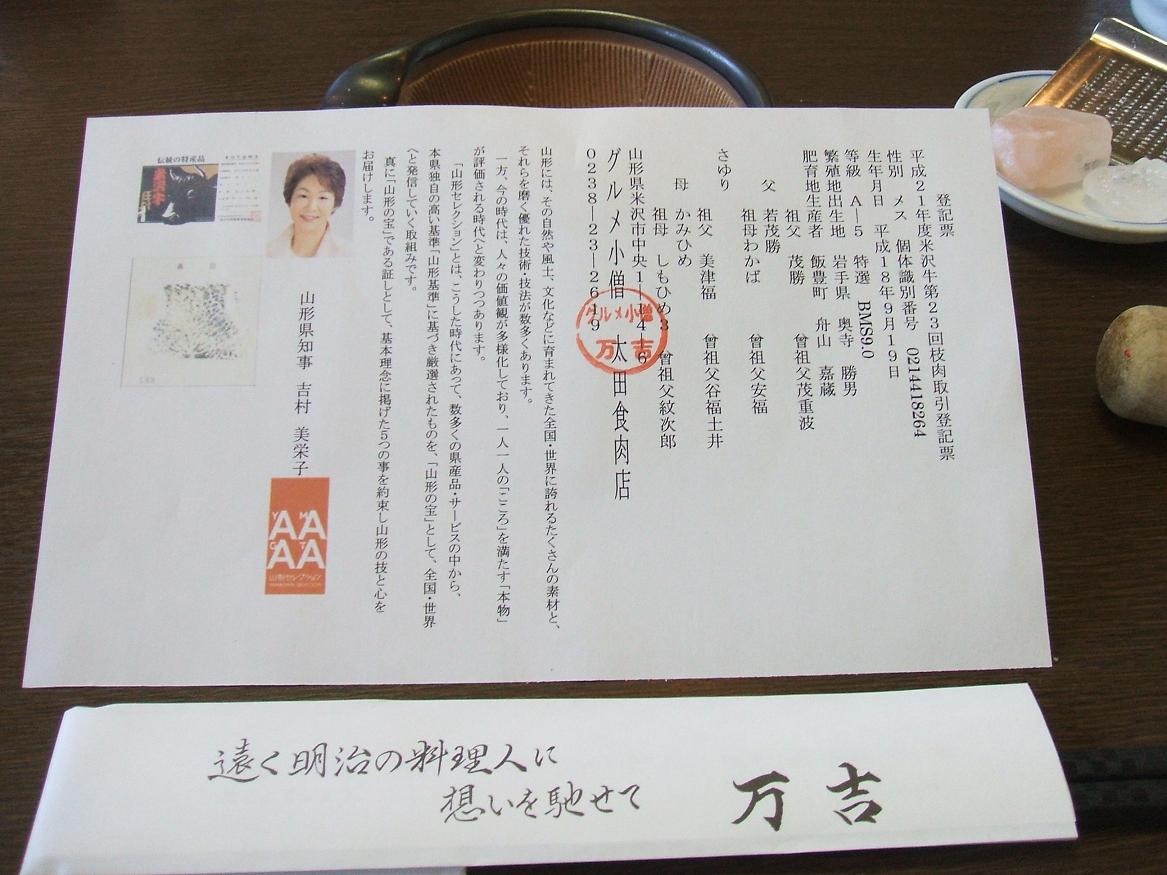 登記票
平成21年度米沢牛第23回枝肉取引登記票
性別 メス 個体識別番号 0214418264
生年月日 平成18年9月19日
等級 A―5 特選 BMS9.0
繁殖地出生地 岩手県 奥寺 勝男
肥育地生産者 飯豊町 舟山 嘉蔵
祖父 茂勝 曾祖父茂重波
父 若茂勝
祖母わかば 曾祖父安福
さゆり
祖父 美津福 曾祖父谷福土井
母 かみひめ
祖母 しもひめ3 曾祖父紋次郎
山形県米沢市中央1―14―6
グルメ小僧 太田食肉店
0238―23―2619
グルメ小僧
万吉
山形には、その自然や風土、文化などに育まれてきた全国・世界に誇れるたくさんの素材と、
それらを磨く優れた技術・技法が数多くあります。
一方、今の時代は、人々の価値観が多様化しており、一人一人の「こころ」を満たす「本物」
が評価される時代へと変わりつつあります。
「山形セレクション」とは、こうした時代にあって、数多くの県産品・サービスの中から、
本県独自の高い基準「山形基準」に基づき厳選されたものを、「山形の宝」として、全国・世界
へと発信していく取組みです。
真に「山形の宝」である証しとして、基本理念に掲げた5つの事を約束し山形の技と心を
お届けします。
山形県知事 吉村 美栄子
YAMA
GATA
山形セレクション
伝統の特産品
米沢牛
遠く明治の料理人に
想いを馳せて
万吉